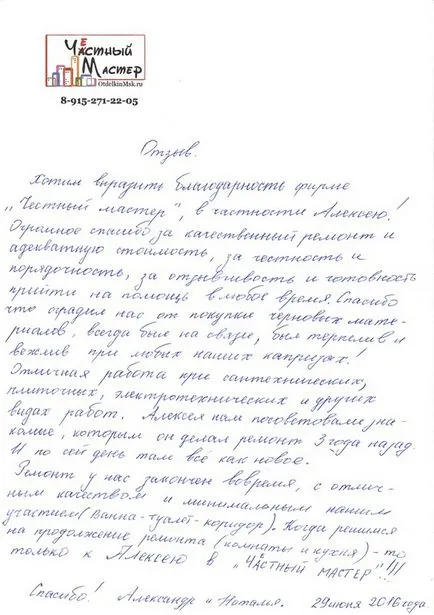 Честный
Мастер
OtdelkinMsk.ru
8-915-271-22-05
Отзыв.
Хотим выразить благодарность фирме
"Честный мастер", в частности Алексею!
Огромное спасибо за качественный ремонт и
адекватную стоимость, за честность и
порядочность, за отзывчивость и готовность
прийти на помощь в любое время. Спасибо
что оградил нас от покупки черновых мате-
риалов, всегда был на связи, был терпелив и
вежлив при любых наших капризах!
Отличная работа при сантехнических,
плиточных, электротехнических и других
видах работ. Алексея нам посоветовали зна-
комые, которым он делал ремонт 3 года назад.
И по сей день там всё как новое.
Ремонт у нас закончен вовремя, с отлич-
ным качеством и минимальным нашим
участием (ванна-туалет-коридор). Когда решимся
на продолжение ремонта (комнаты и кухня) - то
только к Алексею в "ЧЕСТНЫЙ МАСТЕР"!!!
Спасибо! Александр и Наталия. 29 июня 2016 года